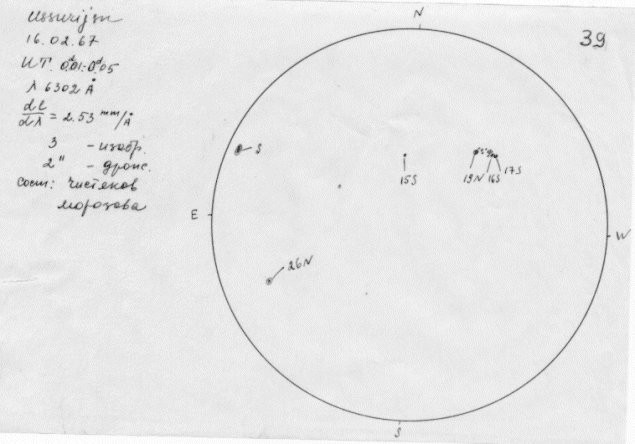 Ussurijsn
16.02.67
UT. 0ᵈ.01-0ᵈ.05
λ 6302 Å
dl/dλ = 2.53 mm/Å
3 - изобр.
2" - дрож.
Сост: Чистяков
Морозова
39
N
S
15S
19N 16S 17S
E
W
26N
S